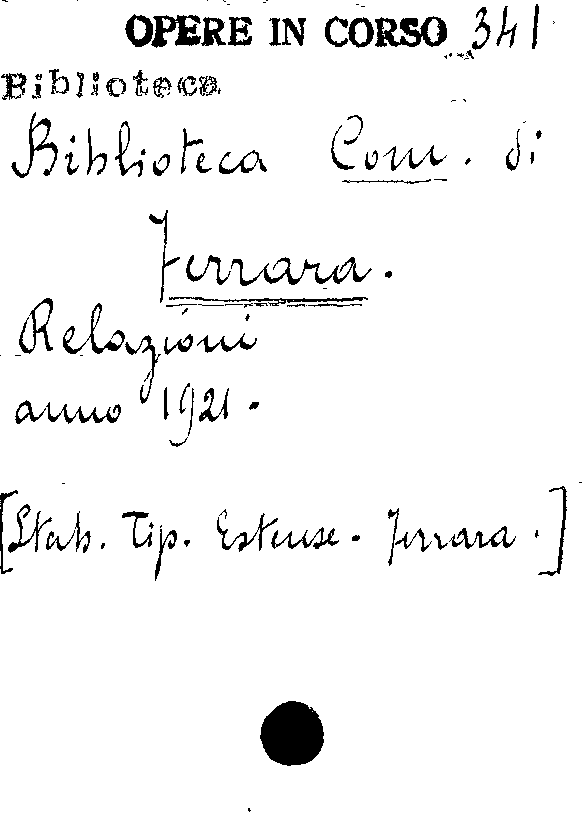 OPERE IN CORSO 341
Biblioteca
Biblioteca Com. di
Ferrara.
Relazioni
anno 1921.
[Stab. Tip. Estense. Ferrara.]